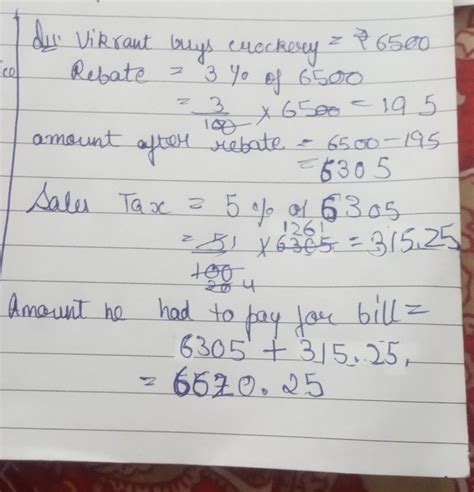 Vikrant buys crockery = ₹ 6500
Rebate = 3 % of 6500
= 3/100 × 6500 = 195
amount after rebate = 6500 - 195
= 6305
Sales Tax = 5 % of 6305
1261
= 51 × 6305 = 315.25
100
20 4
Amount he had to pay for bill =
6305 + 315.25,
= 6620.25